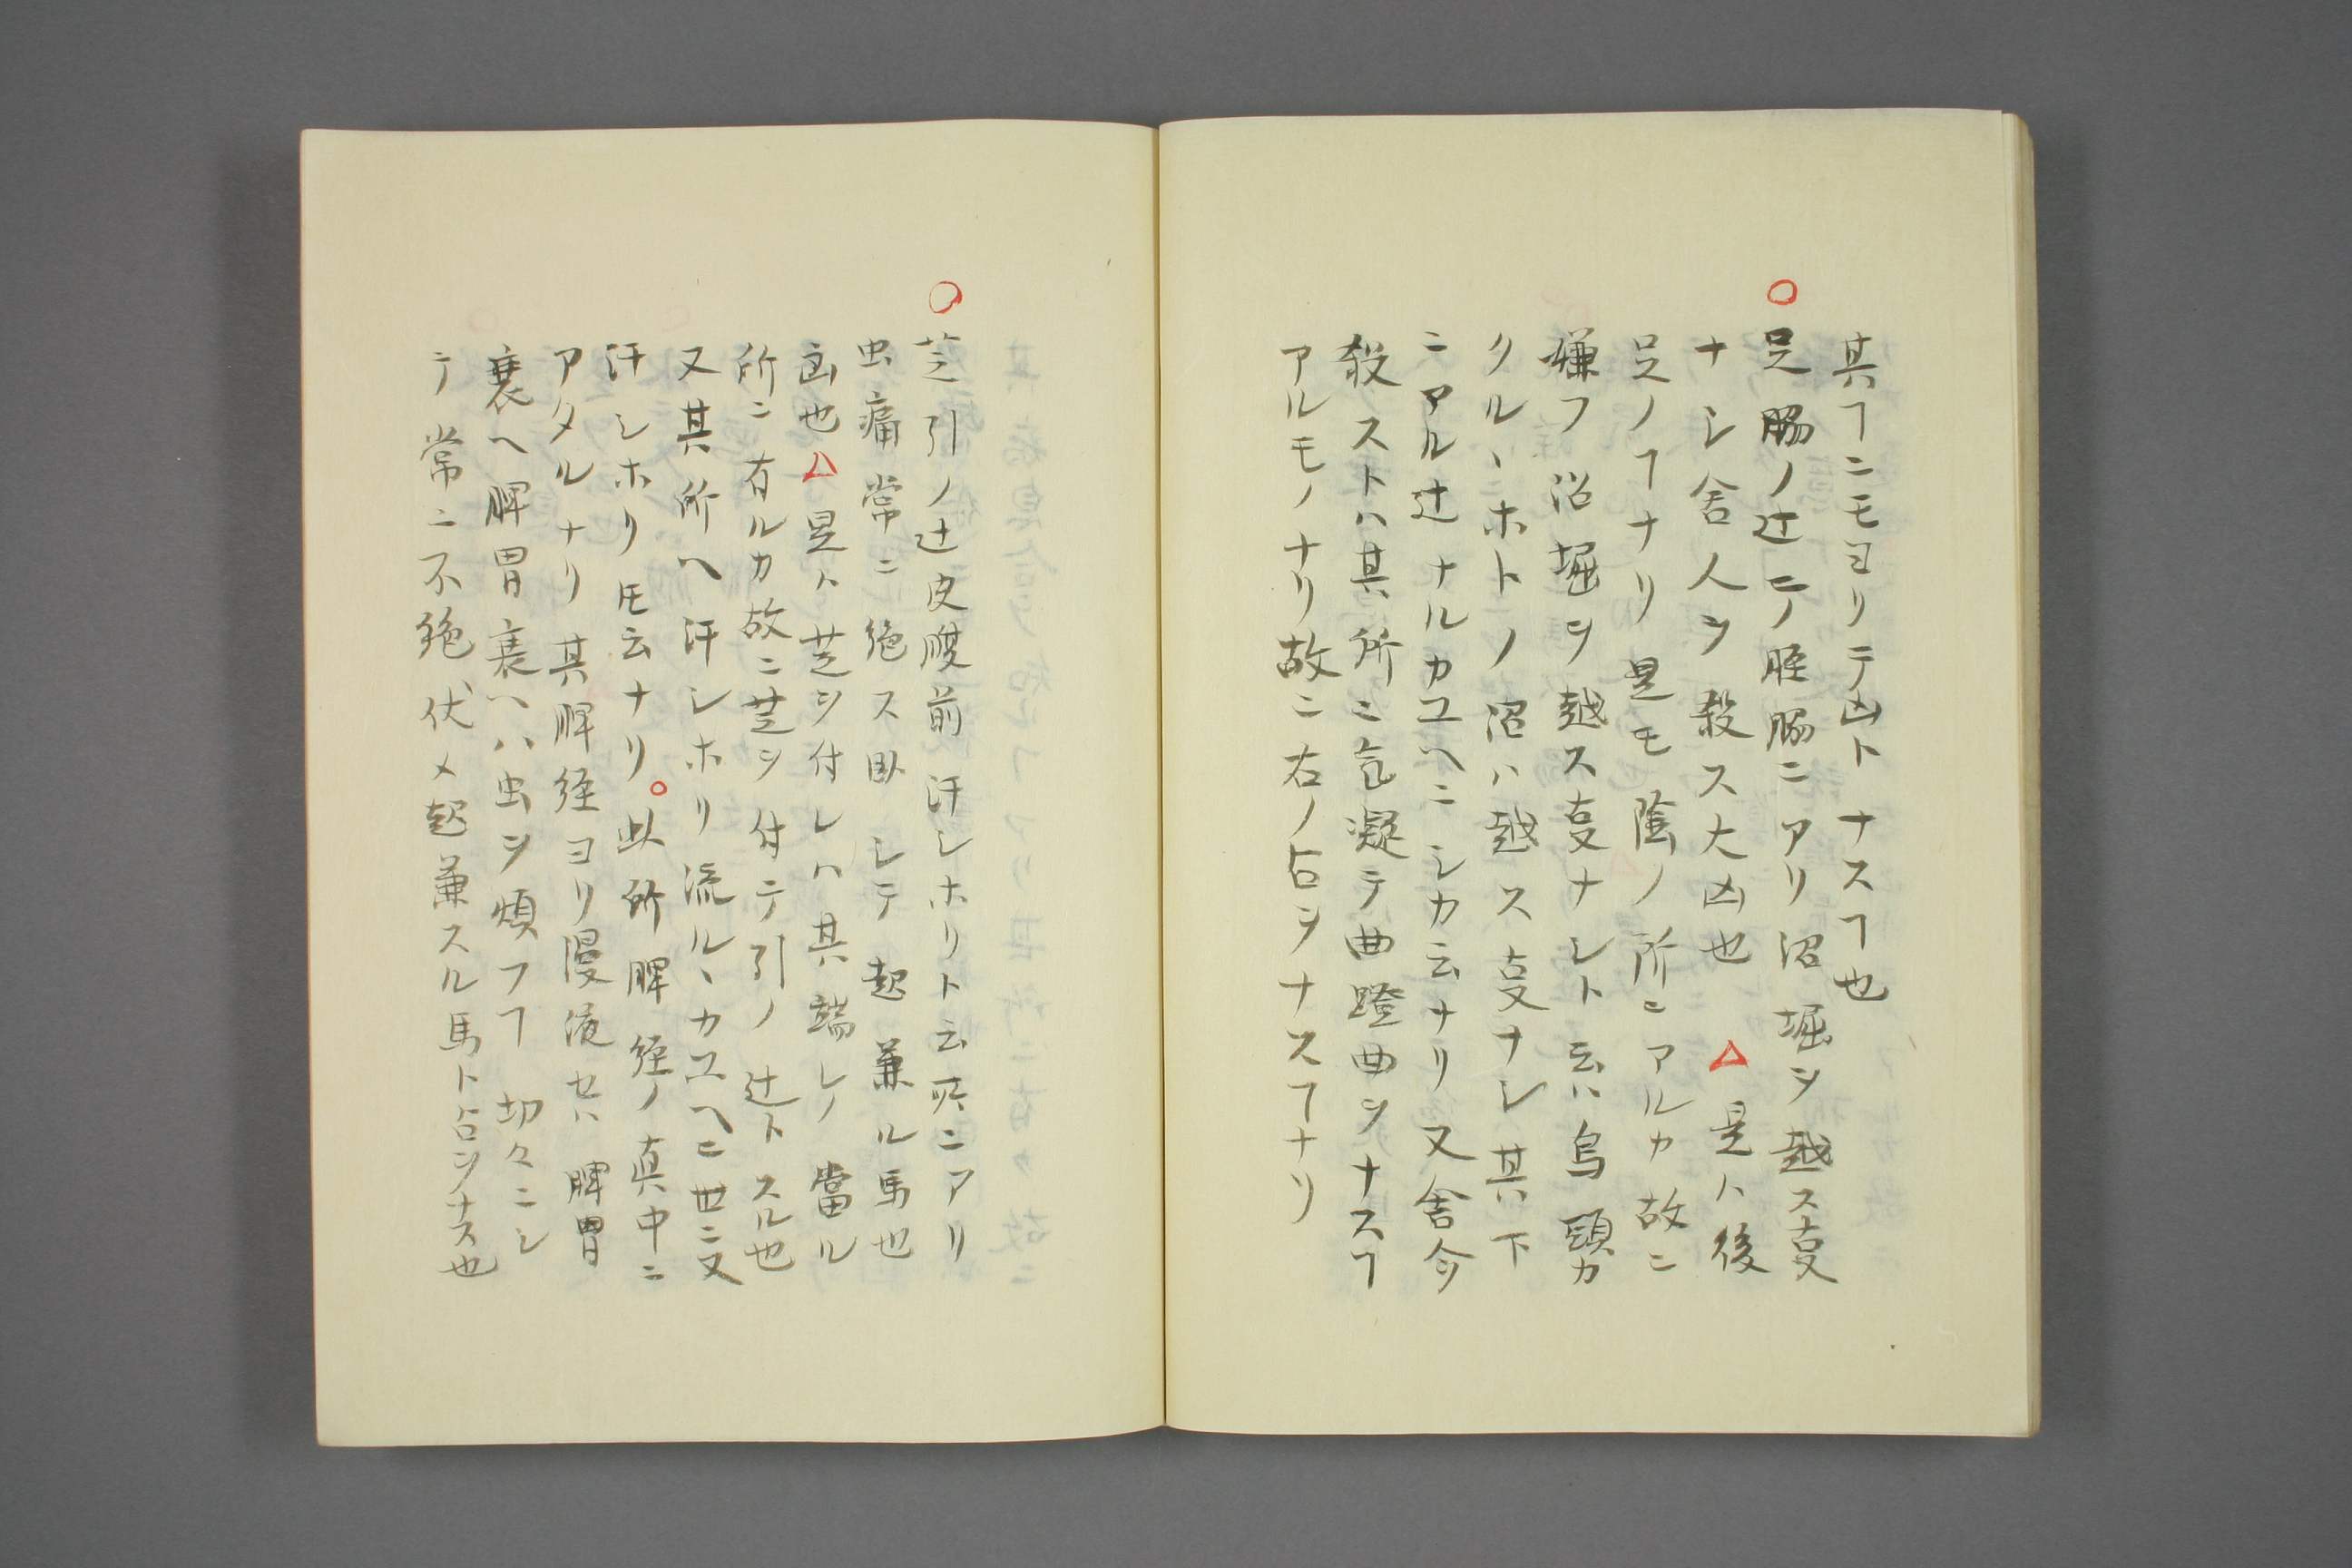 其ヿニモヨリテ凶ト ナスヿ也
○足膓ノ辻 ニノ脛膓ニアリ沼堀ヲ越ス㕝
ナシ舎人ヲ殺ス大凶也 △是ハ後
足ノヿナリ是モ陰ノ所ニアルカ故ニ
嫌フ沼堀ヲ越ス㕝ナシト云ハ烏頭カ
クルヽホトノ沼ハ越ス㕝ナシ其下
ニアル辻ナルカユヘニシカ云ナリ又舎人ヲ
殺ストハ其所ニ気凝テ曲蹬曲ヲナスヿ
アルモノナリ故ニ右ノ占ヲナスヿナリ
○芝引ノ辻皮膜前汗シホリト云所ニアリ
虫痛常ニ絶ス臥シテ起兼ル馬也
凶也△是ハ芝ヲ付レハ其端シノ當ル
所ニ有ルカ故ニ芝ヲ付テ引ノ辻トスル也
又其所ヘ汗シホリ流ルヽカユヘニ世ニ又
汗シホリ𪜈云ナリ○此所脾経ノ真中ニ
アタルナリ其脾経ヨリ漫液セハ脾胃
衰ヘ脾胃衰ヘハ虫ヲ煩フヿ切々ニシ
テ常ニ不絶伏メ起兼スル馬ト占ヲナス也